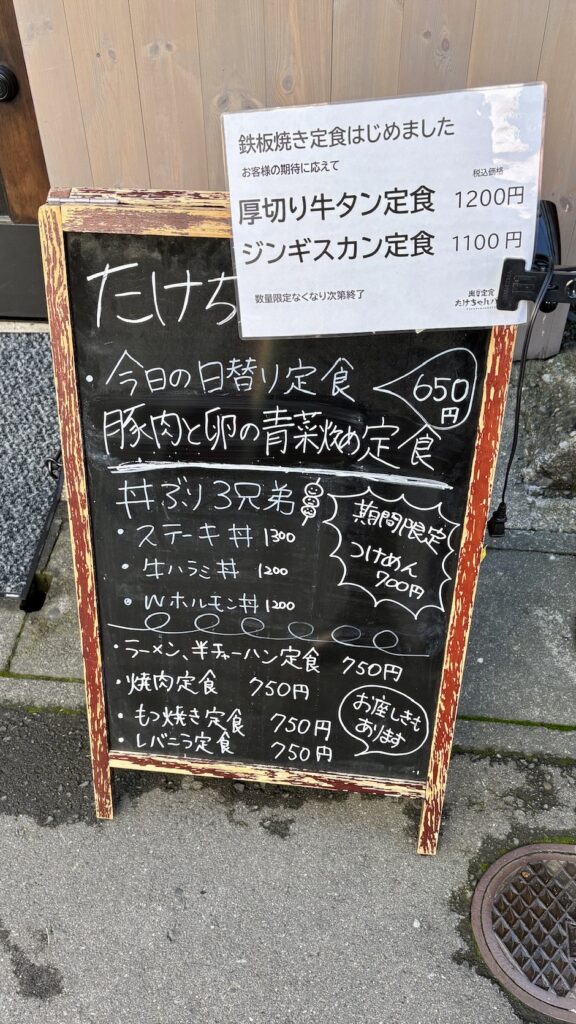 鉄板焼き定食はじめました
お客様の期待に応えて
税込価格
厚切り牛タン定食 1200円
ジンギスカン定食 1100円
数量限定なくなり次第終了
たけちゃん
たけち
・今日の日替り定食 650円
豚肉と卵の青菜炒め定食
丼ぶり3兄弟
・ステーキ丼 1300
・牛ハラミ丼 1200
・Wホルモン丼 1200
期間限定
つけめん
700円
・ラーメン、半チャーハン定食 750円
・焼肉定食 750円
・もつ焼き定食 750円
・レバニラ定食 750円
お座しきも
あります